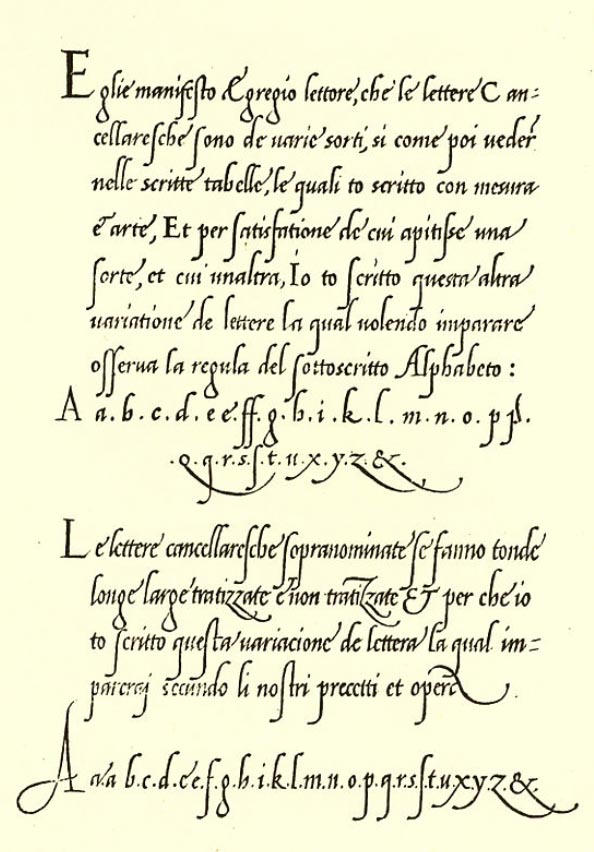 Eglie manifesto Egregio lettore, che le lettere Can=
cellaresche sono de varie sorti, si come poi veder
nelle scritte tabelle, le quali to scritto con mesura
è arte, Et per satisfatione de cui apitisse una
sorte, et cui unaltra, Io to scritto questa altra
variatione de lettere la qual volendo imparare
osserva la regula del sottoscritto Alphabeto:
A a.b.c.d.e e.ff.g.h.i.k.l.m.n.o.p p.
.q.q.r.s.s.t.u.x.y.z.&.
Le lettere cancellaresche sopranominate se fanno tonde
longe large tratizzate è non tratizzate & per che io
to scritto questa variacione de lettera la qual im=
parerai secundo li nostri precetti et opera.
A a.a b.c.d.e e.f.g.h.i.k.l.m.n.o.p.q.r.s.s.t.u.x.y.z.&.